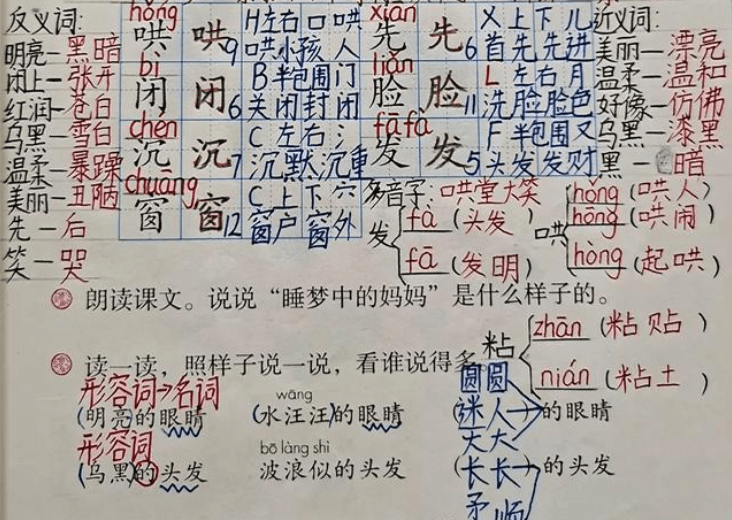 反义词:
明亮—黑暗
闭上—张开
红润—苍白
乌黑—雪白
温柔—暴躁
美丽—丑陋
先—后
笑—哭
hōng
哄 哄 9
H 左右 口 哄
哄小孩 人
bì
闭 闭 6
B 半包围 门
关闭 封闭
chén
沉 沉 7
C 左右 氵
沉默 沉重
chuāng
窗 窗 12
C 上下 穴
窗户 窗外
xiān
先 先 6
X 上下 儿
首先 先进
liǎn
脸 脸 11
L 左右 月
洗脸 脸色
fā fà
发 发 5
F 半包围 又
头发 发财
近义词:
美丽—漂亮
温柔—温和
好像—仿佛
乌黑—漆黑
黑—暗
多音字:
发
fà (头发)
fā (发明)
哄
哄堂大笑
hǒng (哄人)
hōng (哄闹)
hòng (起哄)
朗读课文。说说“睡梦中的妈妈”是什么样子的。
粘
zhān (粘贴)
nián (粘土)
读一读,照样子说一说,看谁说得多。
形容词→名词
(明亮)的眼睛
wāng
(水汪汪)的眼睛
圆圆
(迷人)的眼睛
大大
形容词
(乌黑)的头发
bō làng shì
波浪似的头发
(长长)的头发
柔顺